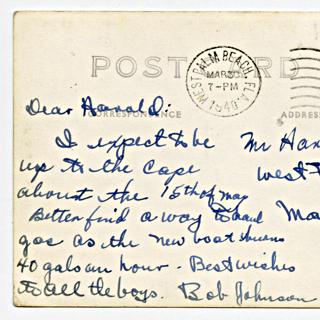 POST CARD
WEST PALM BEACH, FLA.
MAR 30
7-PM
CORRESPONDENCE
ADDRESS
Dear Harold:
I expect to be
up to the Cape
about the 15th of May
Better find a way to haul
gas as the new boat burns
40 gals an hour. Best wishes
to all the boys. Bob Johnson
Mr Har
West
Ma